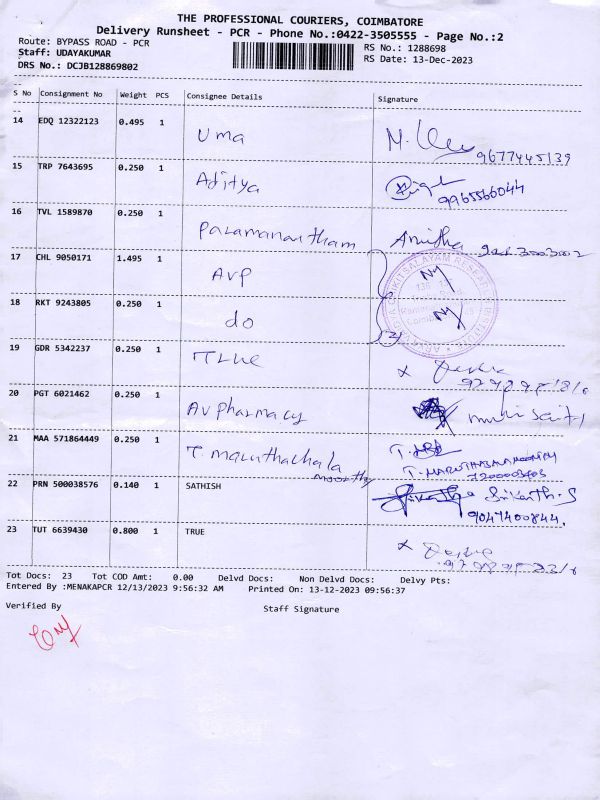 THE PROFESSIONAL COURIERS, COIMBATORE
Delivery Runsheet - PCR - Phone No.:0422-3505555 - Page No.:2
Route: BYPASS ROAD - PCR
RS No.: 1288698
Staff: UDAYAKUMAR
RS Date: 13-Dec-2023
DRS No.: DCJB128869802
S No Consignment No Weight PCS Consignee Details Signature
14 EDQ 12322123 0.495 1 Uma
9677445139
15 TRP 7643695 0.250 1 Aditya
9965566044
16 TVL 1589870 0.250 1 Paramanantham Anitha
17 CHL 9050171 1.495 1 AVP
18 RKT 9243805 0.250 1 do
19 GDR 5342237 0.250 1 True
20 PGT 6021462 0.250 1 AV Pharmacy
21 MAA 571864449 0.250 1 T. Maruthachala
moorthy
7200003403
22 PRN 500038576 0.140 1 SATHISH Srikanth.S
9047400844.
23 TUT 6639430 0.800 1 TRUE
Tot Docs: 23 Tot COD Amt: 0.00 Delvd Docs: Non Delvd Docs: Delvy Pts:
Entered By :MENAKAPCR 12/13/2023 9:56:32 AM Printed On: 13-12-2023 09:56:37
Verified By Staff Signature